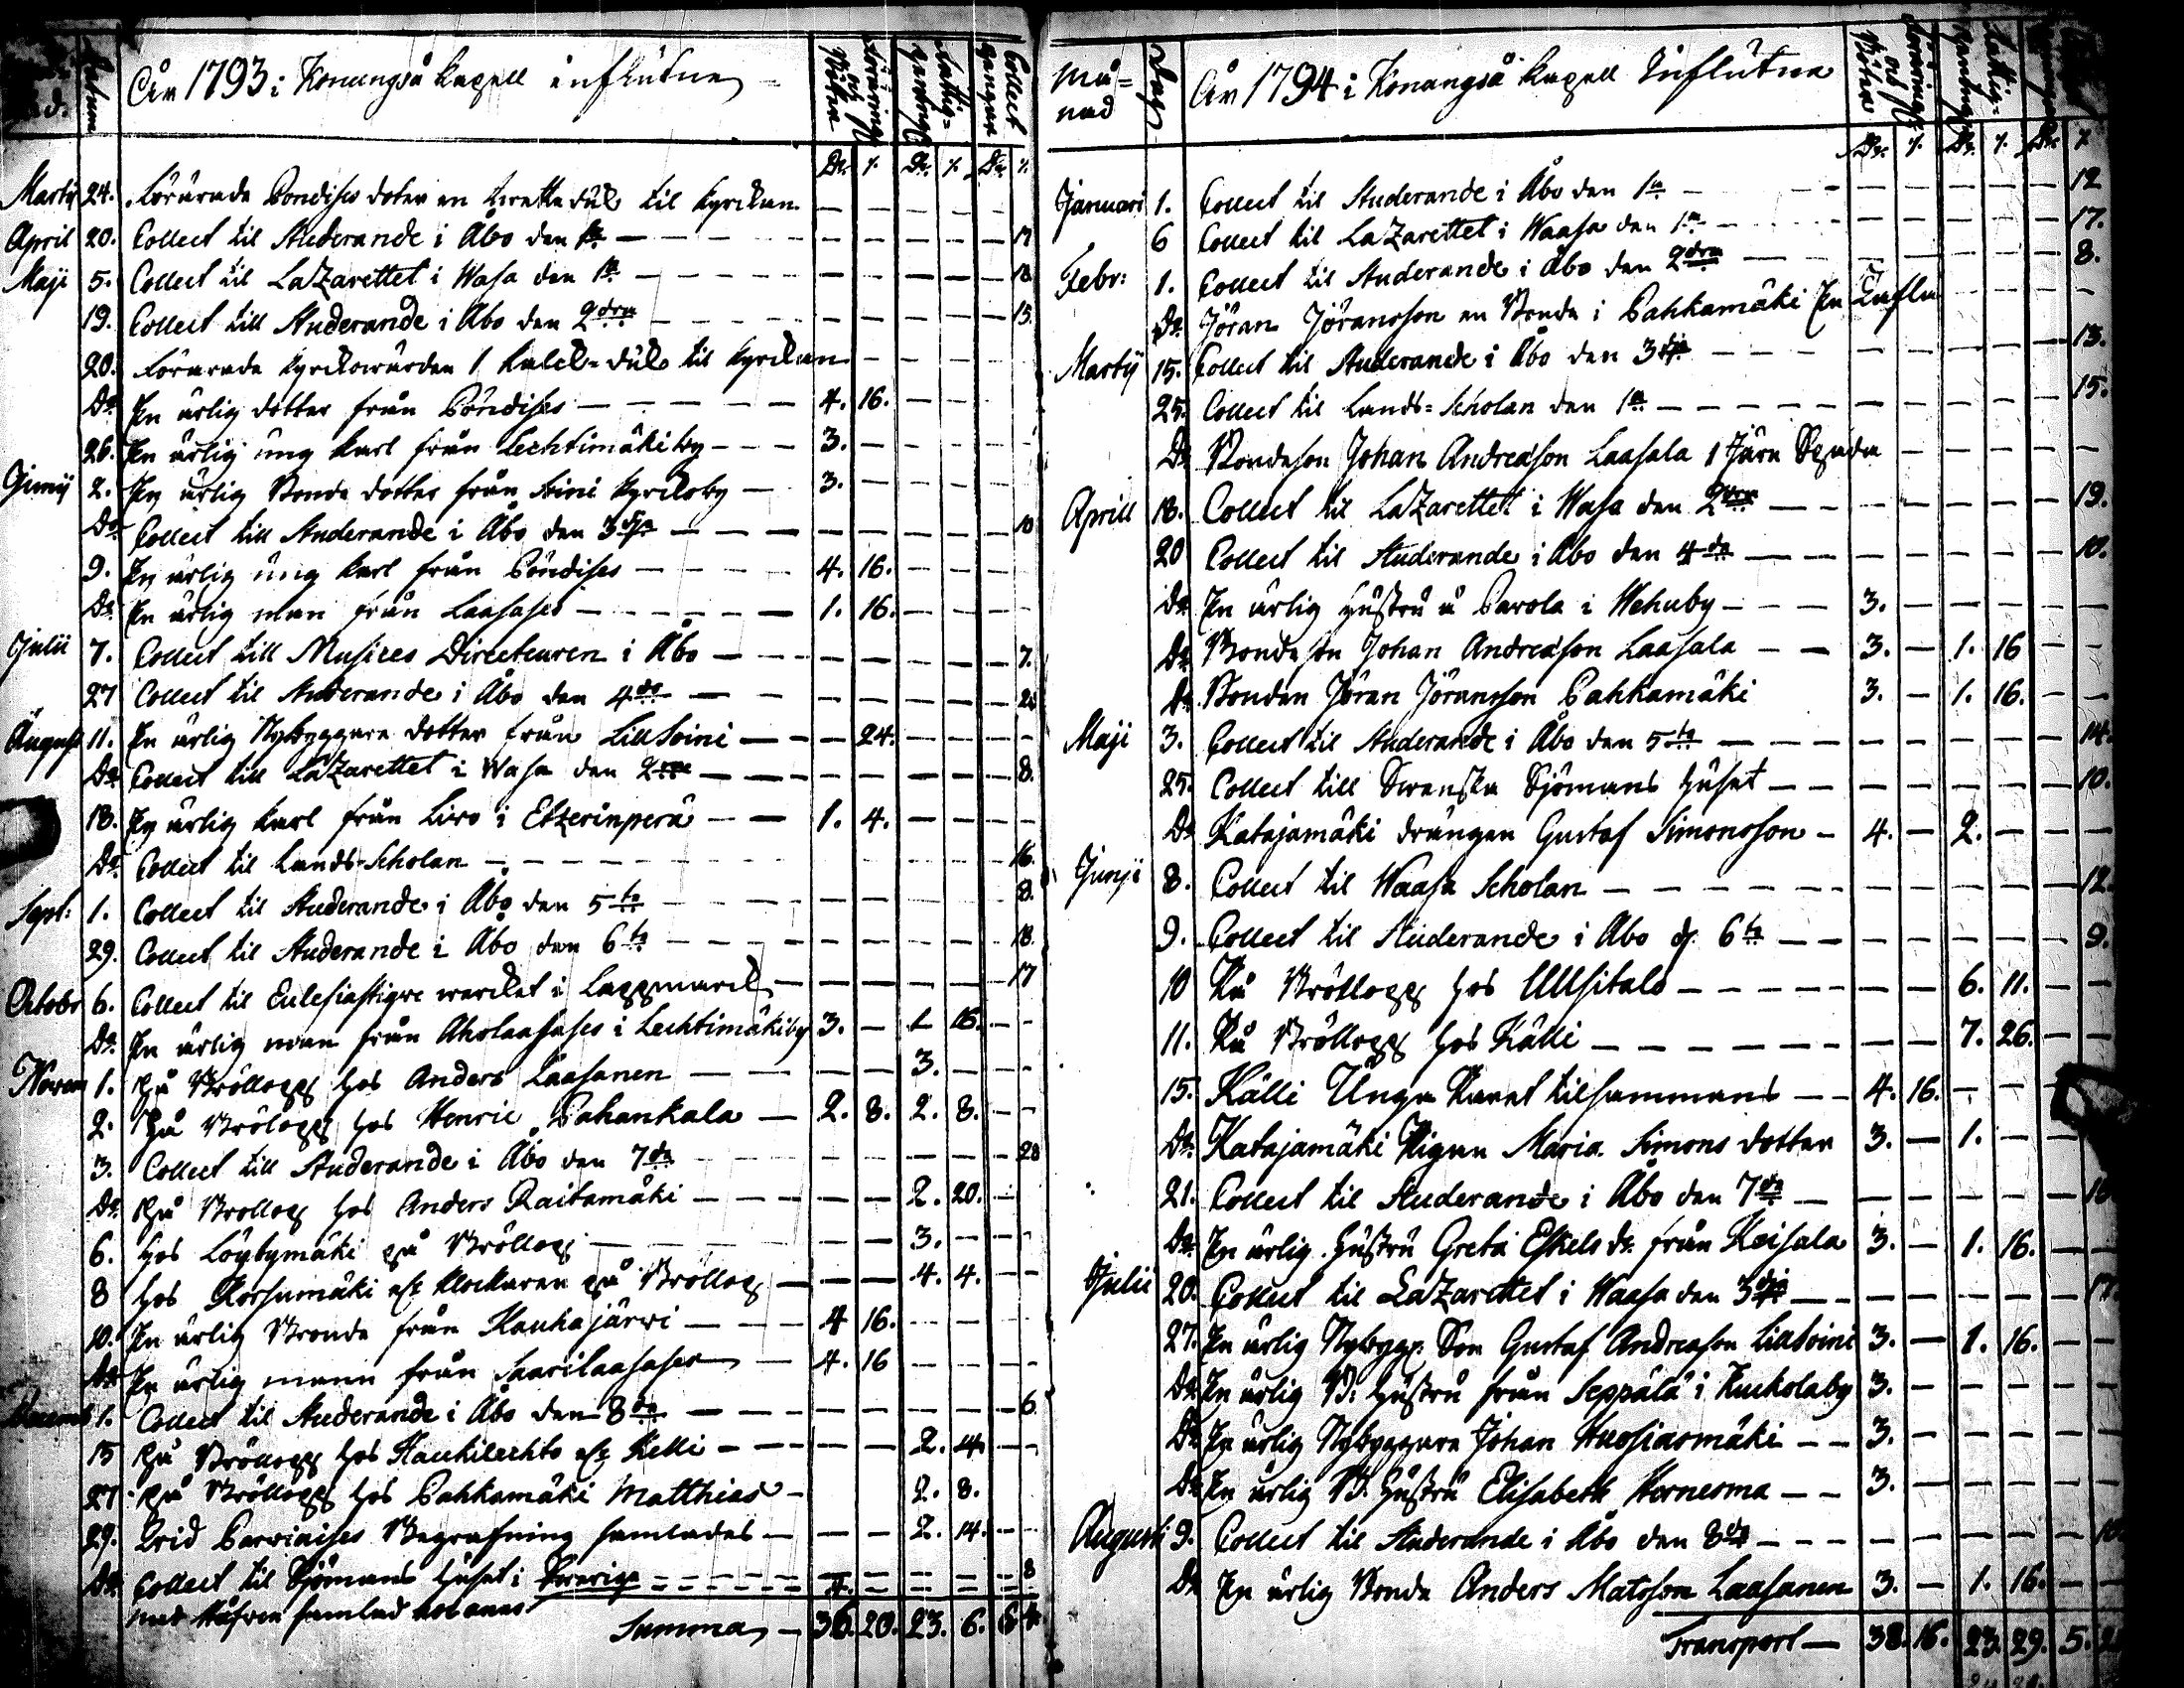 Datum
År 1793 i Konungså Kapell influtna
Collect
Martij 24. Förärade Pöndises doter en kratteduk til Kyrckan
April 20. Collect til Studerande i Åbo den 1ta 17
Maji 5. Collect til Lazarettet i Wasa den 1ta 18
19. Collect till Studerande i Åbo den 2dra 15.
20. Förärade Kyrckowärden 1 Kalck-duk til Kyrckan
Do En ärlig dotter från Pöndises 4. 16.
26. En ärlig ung karl från Lechtimäki by 3.
Junij 2. En ärlig Bonde dotter från Soini Kyrckoby 3.
Do Collect till Studerande i Åbo den 3dje 10
9. En ärlig ung karl från Pöndises 4. 16.
Do En ärlig man från Laasases 1. 16.
Julii 7. Collect till Musices Directeuren i Åbo 7.
27 Collect til Studerande i Åbo den 4de
August 11. En ärlig Nybyggare dotter från Lill Soini 24.
Do Collect till Lazarettet i Wasa den 2dra 8.
18. En ärlig karl från Liro i Etzerinperä 1. 4.
Do Collect til Lands-Scholan 16.
Sept: 1. Collect til Studerande i Åbo den 5te 8.
29. Collect til Studerande i Åbo den 6te 18.
Octobr 6. Collect til Eclesiastique wercket i Lappmarck 17
Do En ärlig man från Aholaasases i Lechtimäkiby 3. 1 16.
Novem 1. På Bröllopp hos Anders Laasanen 3.
2. På Brölopp hos Henric Pahankala 2. 8. 2. 8.
3. Collect till Studerande i Åbo den 7de 20
Do På Brollop hos Anders Raitamäki 2. 20.
6. Hos Löytymäki på Bröllop 3.
8 Hos Korsumäki af Klockaren på Bröllop 4. 4.
10. En ärlig Bonde från Kauhajärwi 4 16.
Do En ärlig mann från Saarilaasases 4. 16
Decemb 1. Collect til Studerande i Åbo den 8de 6.
15 På Bröllopp hos Haukilechto af Kelli 2. 4.
27 På Bröllopp hos Pahkamäki Matthias 2. 8.
29. Wid Parwiaises Begrafning samlades 2. 14.
Do Collect til Sjömans Huset i Swerige 8
med Håfwen samlad
Summa 36. 20. 23. 6. 6 4.
Må=nad Dag
År 1794 i Konangså Kapell Influtna
Januari 1. Collect til Studerande i Åbo den 1ta 12
6 Collect til Lazarettet i Waasa den 1ta 17.
Febr: 1. Collect til Studerande i Åbo den 2dra 8.
Do Jöran Jöransson en Bonde i Pahkamäki En Tafla
Martij 15. Collect til Studerande i Åbo den 3dje 13.
25. Collect til Lands-Scholan den 1ta 15.
Do Bondeson Johan Andreasson Laasala 1 Järn Spada
Aprill 18. Collect til Lazarettet i Wasa den 2dra 19.
20 Collect til Studerande i Åbo den 4de 10.
Do En ärlig Hustru å Parola i Wehuby 3.
Do Bondeson Johan Andreasson Laasala 3. 1. 16
Do Bonden Jöran Jöransson Pahkamäki 3. 1. 16.
Maji 3. Collect til Studerande i Åbo den 5te 14.
25. Collect till Swenska Sjömans Huset 10.
Do Katajamäki drängen Gustaf Simonsson 4. 2.
Junji 8. Collect til Waasa Scholan 12.
9. Collect til Studerande i Åbo d. 6te 9.
10 På Bröllopp hos UUsitalo 6. 11.
11. På Bröllopp hos Källi 7. 26.
15. Källi Unga Paret tilsammans 4. 16.
Do Katajamäki Pigan Maria Simons dotter 3. 1.
21. Collect til Studerande i Åbo den 7de
Do En ärlig Hustru Greta Eskels dr. från Keisala 3. 1. 16.
Julii 20. Collect til Lazarettet i Waasa den 3dje 17.
27. En ärlig Nybygg: Son Gustaf Andreason Lillsoini 3. 1. 16.
Do En ärlig B: Hustru från Seppälä i Kuckolaby 3.
Do En ärlig Nybyggare Johan Huosiasmäki 3.
Do En ärlig B. Hustru Elisabeth Hernesma 3.
Augusti 9. Collect til Studerande i Åbo den 8de
Do En ärlig Bonde Anders Matsson Laasanen 3. 1. 16.
Transport 38. 16. 23. 29. 5.